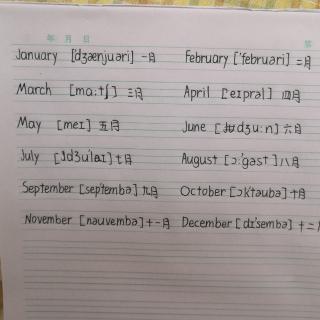 年 月 日 第
January [dʒænjuəri] 一月 February ['februəri] 二月
March [mɑ:tʃ] 三月 April ['eɪprəl] 四月
May [meɪ] 五月 June [dʒu:n] 六月
July [dʒu'laɪ] 七月 August [ɔ:'gəst] 八月
September [sep'tembə] 九月 October [ɔktəubə] 十月
November [nəuvembə] 十一月 December [dɪ'sembə] 十二月